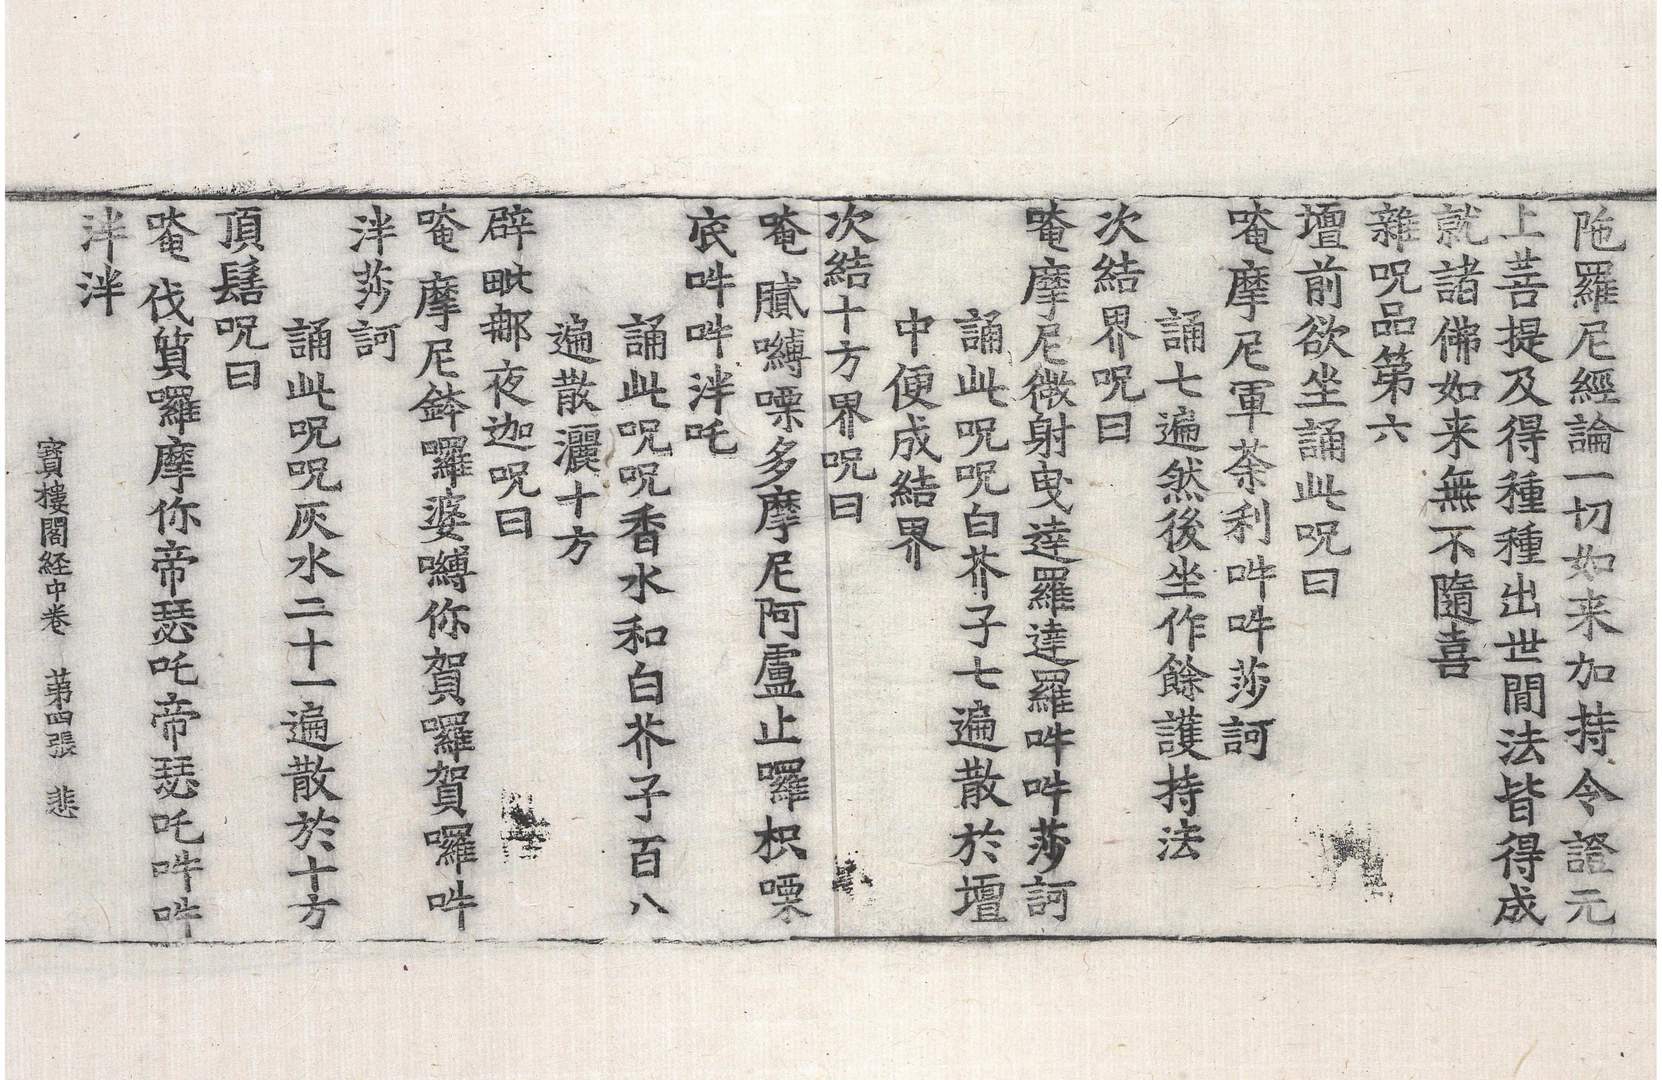 陁羅尼經論一切如来加持令證元
上菩提及得種種出世間法皆得成
就諸佛如来無不隨喜
雜呪品第六
壇前欲坐誦此呪曰
唵摩尼軍荼利吽吽莎訶
誦七遍然後坐作餘護持法
次結界呪曰
唵摩尼微射曳達羅達羅吽吽莎訶
誦此呪呪白芥子七遍散於壇
中便成結界
次結十方界呪曰
唵膩嚩㗚多摩尼阿盧止囉枳㗚
底吽吽泮吒
誦此呪呪香水和白芥子百八
遍散灑十方
辟毗那夜迦呪曰
唵摩尼鉢囉婆嚩你賀囉賀囉吽
泮莎訶
誦此呪呪灰水二十一遍散於十方
頂髻呪曰
唵伐質囉摩你帝瑟吒帝瑟吒吽吽
泮泮
寶樓閣経中卷 苐四張 悲